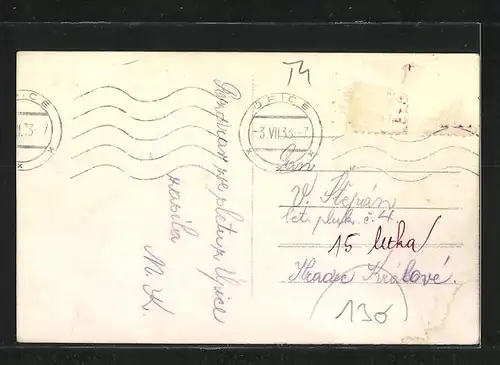 ÚPICE
-3.VII.33.-7
Pozdrav ze pletury Úpice
zasílá
M. K.
Pan
V. Štěpán
let. pluk. č. 4.
15 letka
Hradec Králové.
130